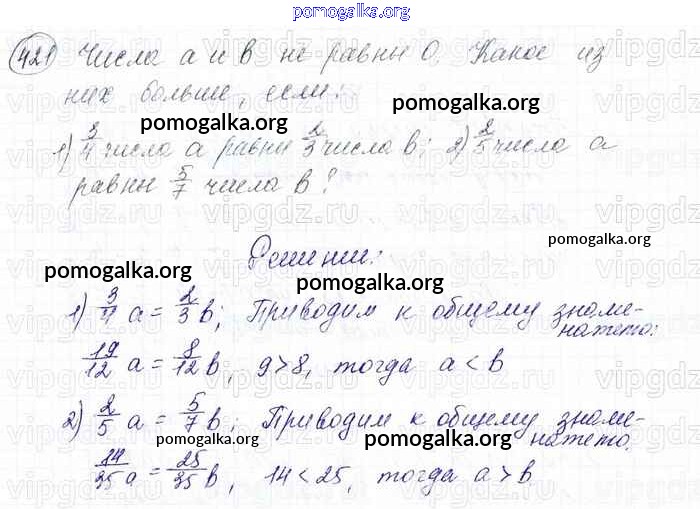 pomogalka.org
421 Числа а и в не равны 0. Какое из
них больше, если:
pomogalka.org pomogalka.org
1) 3/4 числа а равны 2/3 числа в; 2) 2/5 числа а
равны 5/7 числа в?
pomogalka.org
Решение:
pomogalka.org
pomogalka.org
1) 3/4 а = 2/3 в; Приводим к общему знаме-
нателю:
19/12 а = 8/12 в, 9 > 8, тогда а < в
pomogalka.org
2) 2/5 а = 5/7 в; Приводим к общему знаме-
нателю.
pomogalka.org pomogalka.org
14/35 а = 25/35 в, 14 < 25, тогда а > в